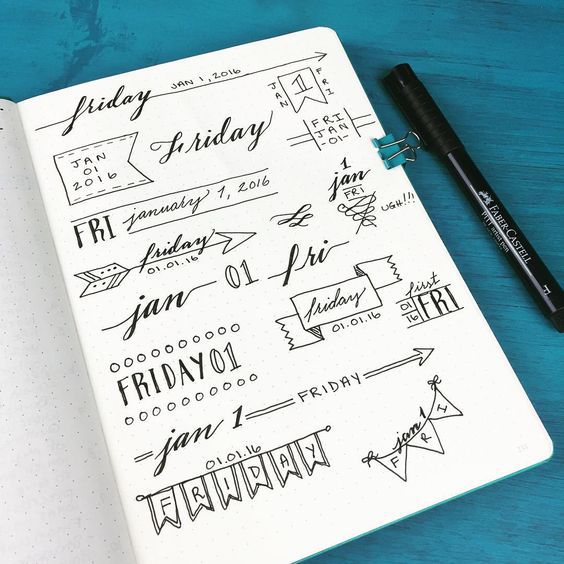 friday
JAN 1, 2016
JAN
1
FRI
JAN
01
2016
Friday
FRI
JAN
-01-
FRI january 1, 2016
1
jan
FRI
UGH!!!
friday
01.01.16
jan 01
fri
friday
01.01.16
first
01
16
FRI
FRIDAY 01
jan 1
FRIDAY
01.01.16
FRIDAY
jan 1
FRI
FABER-CASTELL
PITT artist pen
F